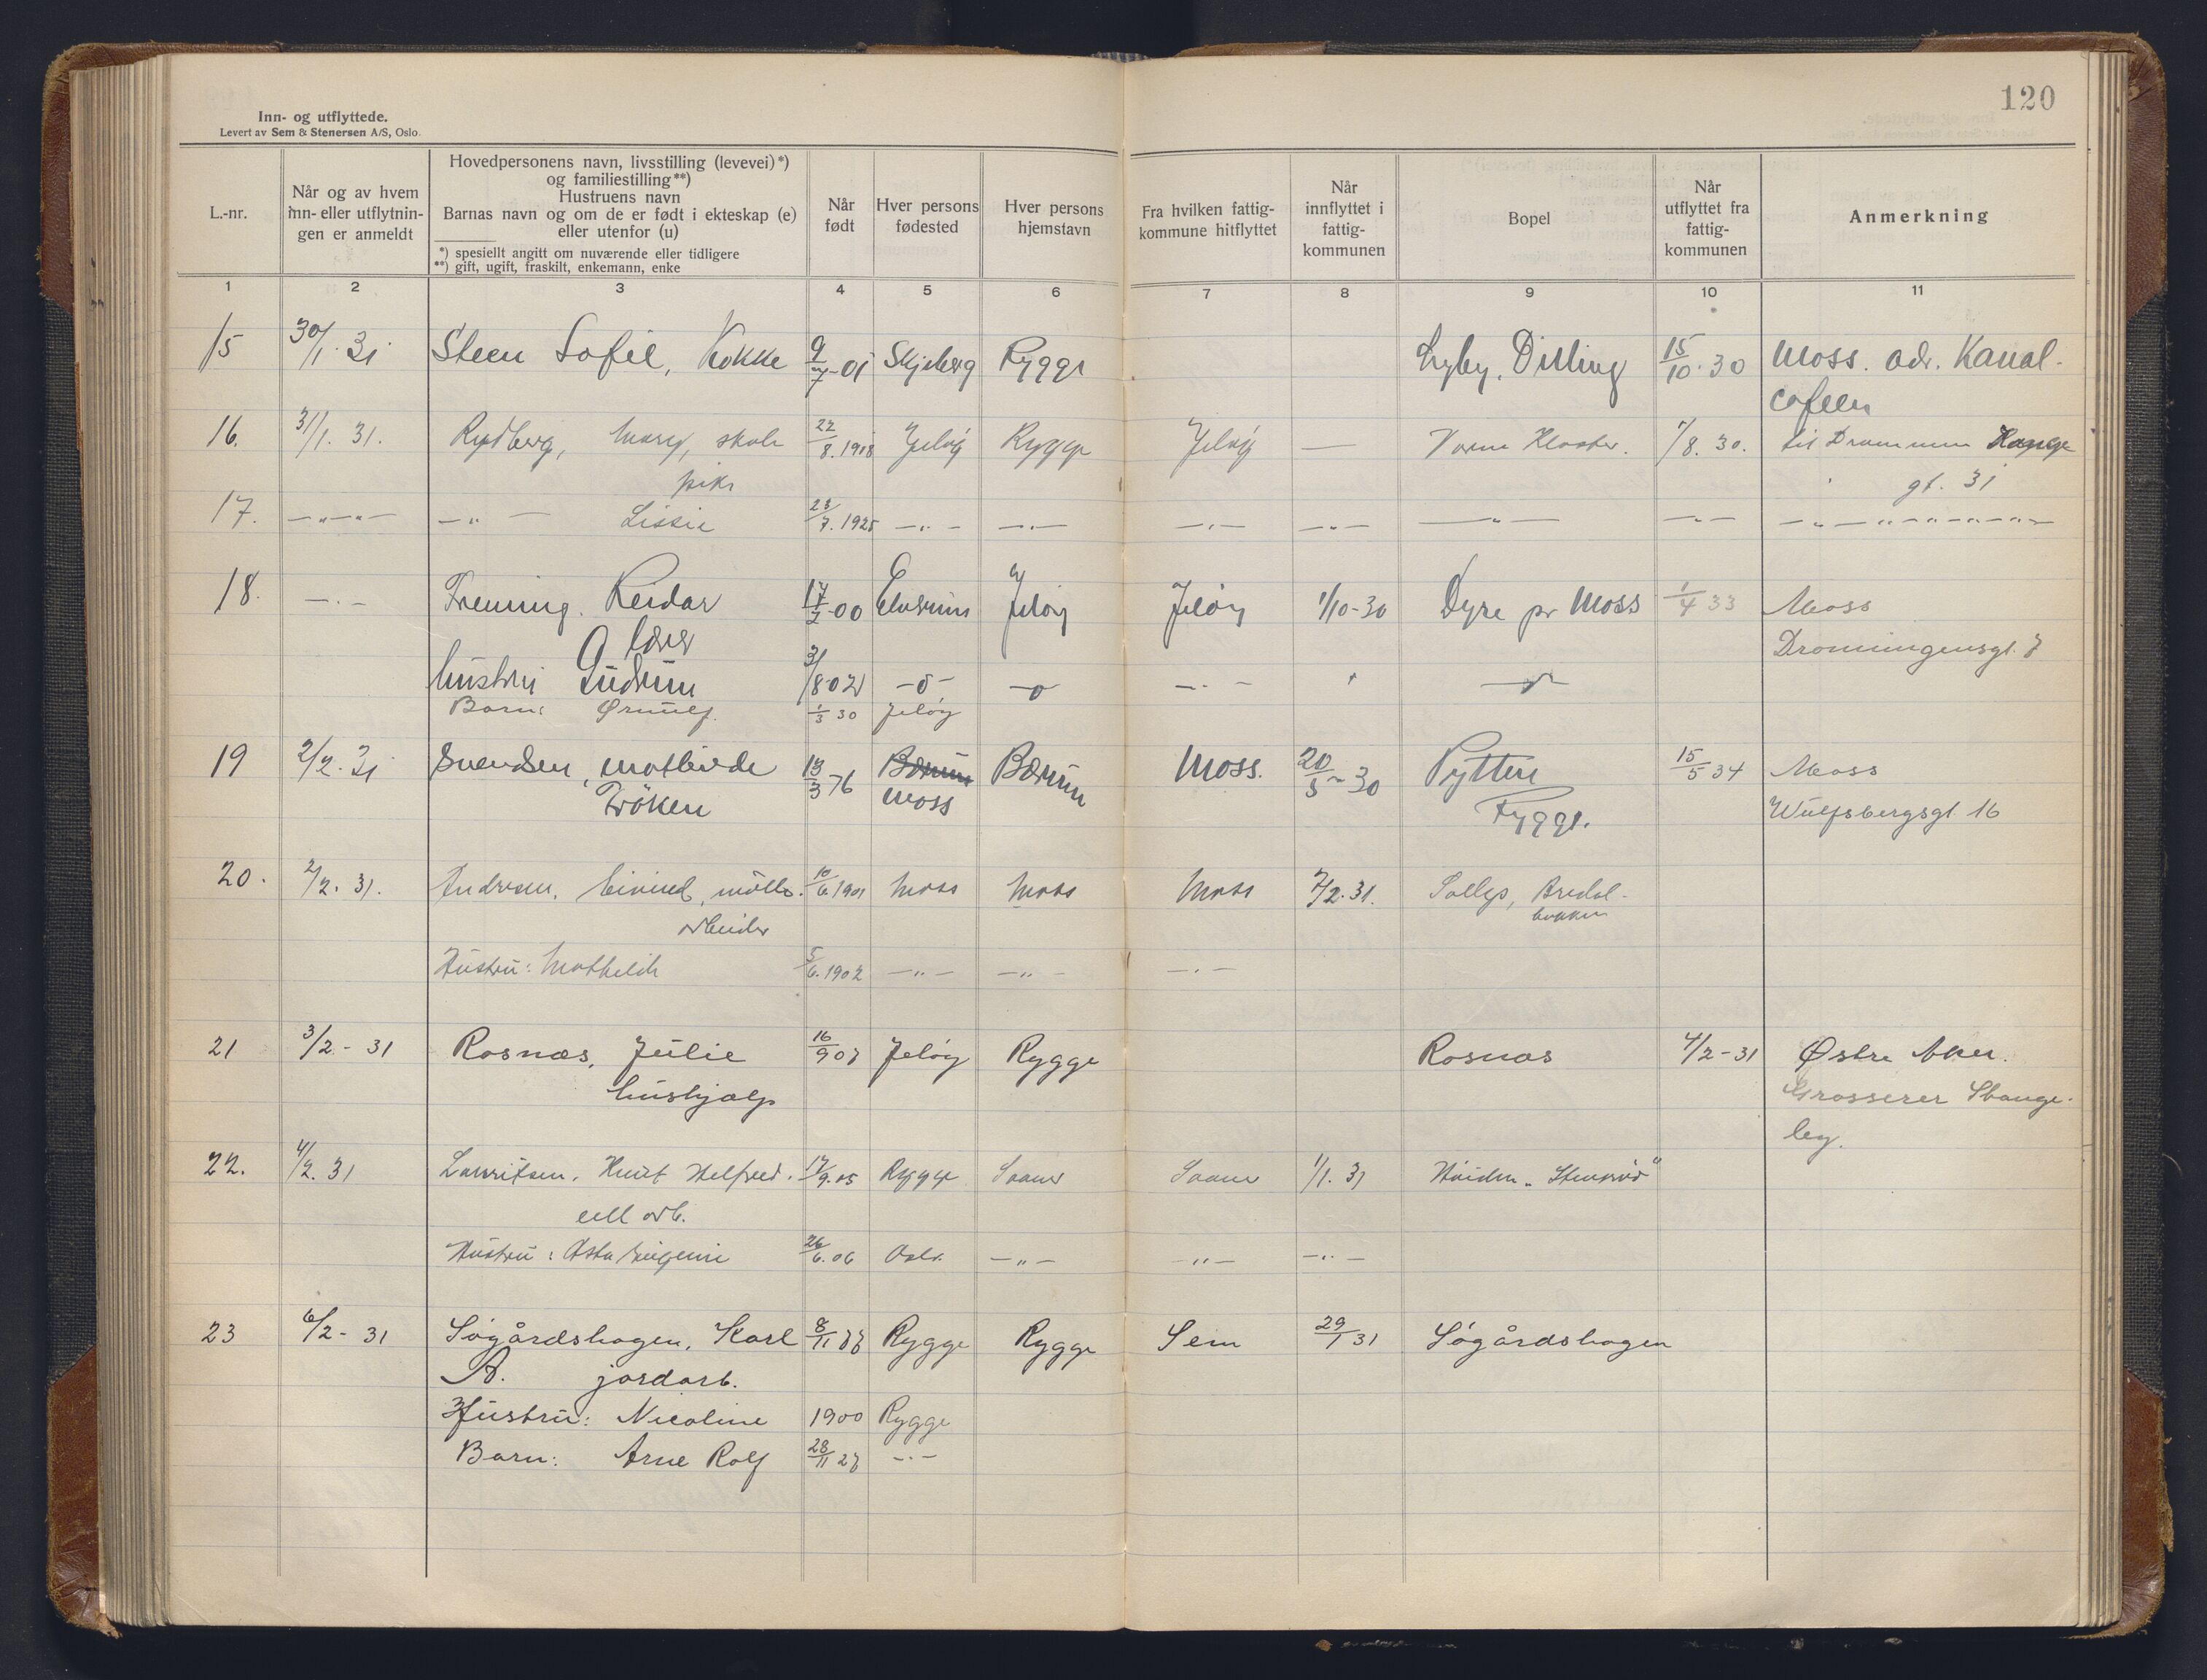 120
Inn- og utflyttede.
Levert av Sem & Stenersen A/S, Oslo.
L.-nr.
Når og av hvem
inn- eller utflytnin-
gen er anmeldt
Hovedpersonens navn, livsstilling (levevei)*)
og familiestilling**)
Hustruens navn
Barnas navn og om de er født i ekteskap (e)
eller utenfor (u)
*) spesiellt angitt om nuværende eller tidligere
**) gift, ugift, fraskilt, enkemann, enke
Når
født
Hver persons
fødested
Hver persons
hjemstavn
Fra hvilken fattig-
kommune hitflyttet
Når
innflyttet i
fattig-
kommunen
Bopel
Når
utflyttet fra
fattig-
kommunen
Anmerkning
1 2 3 4 5 6 7 8 9 10 11
15 30/1. 31 Steen Sofie, Kokke 9/7-01 Skjeberg Rygge Dilling 15/10.30 Moss. adr. Kanal-
cafeen
16. 31/1. 31. Rydberg, Mary, skole 22/8.1918 Jeløy Rygge Jeløy — Værne Kloster. 7/8. 30. til Drammen Hauge
pike gt. 31
17. —„—„— —„— Lissie 23/7.1925 —„— —„— —„— —„— —„— —„— —„—„—„—„—
18. —„— Frenning. Reidar 17/2-00 Elverum Jeløy Jeløy 1/10-30 Dyre pr Moss 1/4 33 Moss
lærer Dronningensgt. 7
hustru Gudrun 31/8-02 —o— —o— —„— „ —„—
Barn: Ørnulf. 1/3 30 Jeløy
19 2/2. 31 Svendsen, Mathilde 13/3 76 Bærum Bærum Moss. 20/5-30 Pytten 15/5 34 Moss
Frøken Moss Rygge. Wulfsbergsgt 16
20. 2/2. 31. Andresen, Eivind, mølle- 10/6 1901 Moss Moss Moss 2/2. 31. Solli, Bredal-
arbeider bakken
Hustru: Mathilde 5/6.1902 —„— —„— —„—
21 3/2 - 31 Rosnæs, Julie 16/9 07 Jeløy Rygge Rosnæs 4/2-31 Østre Aker.
hushjælp Grosserer Stange-
by.
22. 4/2. 31 Lauritsen, Knut Helfred. 17/9.05 Rygge Saaner Saaner 1/1. 31 Høiden „Stenrød"
cell arb.
Hustru: Asta Eugenie 26/6.06 Oslo. —„— —„— —„—
23 6/2- 31 Søgårdshagen, Karl 8/11 77 Rygge Rygge Sem 29/1 31 Søgårdshagen
A. jordarb.
Hustru: Nicoline 1900 Rygge
Barn: Arne Rolf 28/11 27 —„—